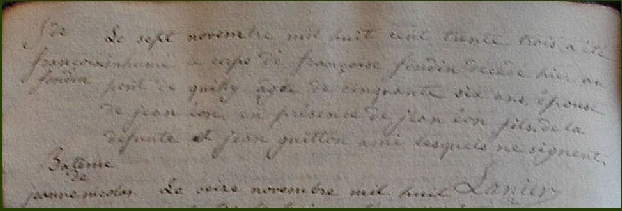 Sre Le sept novembre mil huit cent trente trois a été
francoise inhumé le corps de françoise fondin décédé hier au
fondin pont de quihy âgée de cinquante six ans, épouse
de jean éon, en présence de jean éon fils, de la
défunte et jean guitton ami lesquels ne signent.
Bateme Lanier
de
jeanne nicolas. Le seize novembre mil huit